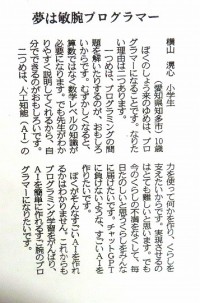 夢は敏腕プログラマー
横山 滉心 小学生
(愛知県知多市) 10歳
ぼくのしょう来のゆめは、プロ
グラマーになることです。なりた
い理由は二つあります。
一つめは、プログラミングの問
題を解いたりするのが、おもしろ
いからです。むずかしくなると、
算数ではなく数学レベルの知識が
必要になります。でも先生がわか
りやすく説明してくれるから、自
分でできるのがおもしろいです。
二つめは、人工知能(AI)の
力を使って何かを作り、くらしを
支えたいからです。実現させるの
はとても難しいと思います。でも
今のくらしの不満をなくして、毎
日たのしいと思うくらしをみんな
に届けたいです。チャットGPT
に負けないような、すごいAIを
作りたいです。
ぼくがそんなすごいAIを作れ
るかはわかりません。これからも
プログラミング学習をがんばり、
AIを簡単に作れるすご腕のプロ
グラマーになりたいです。